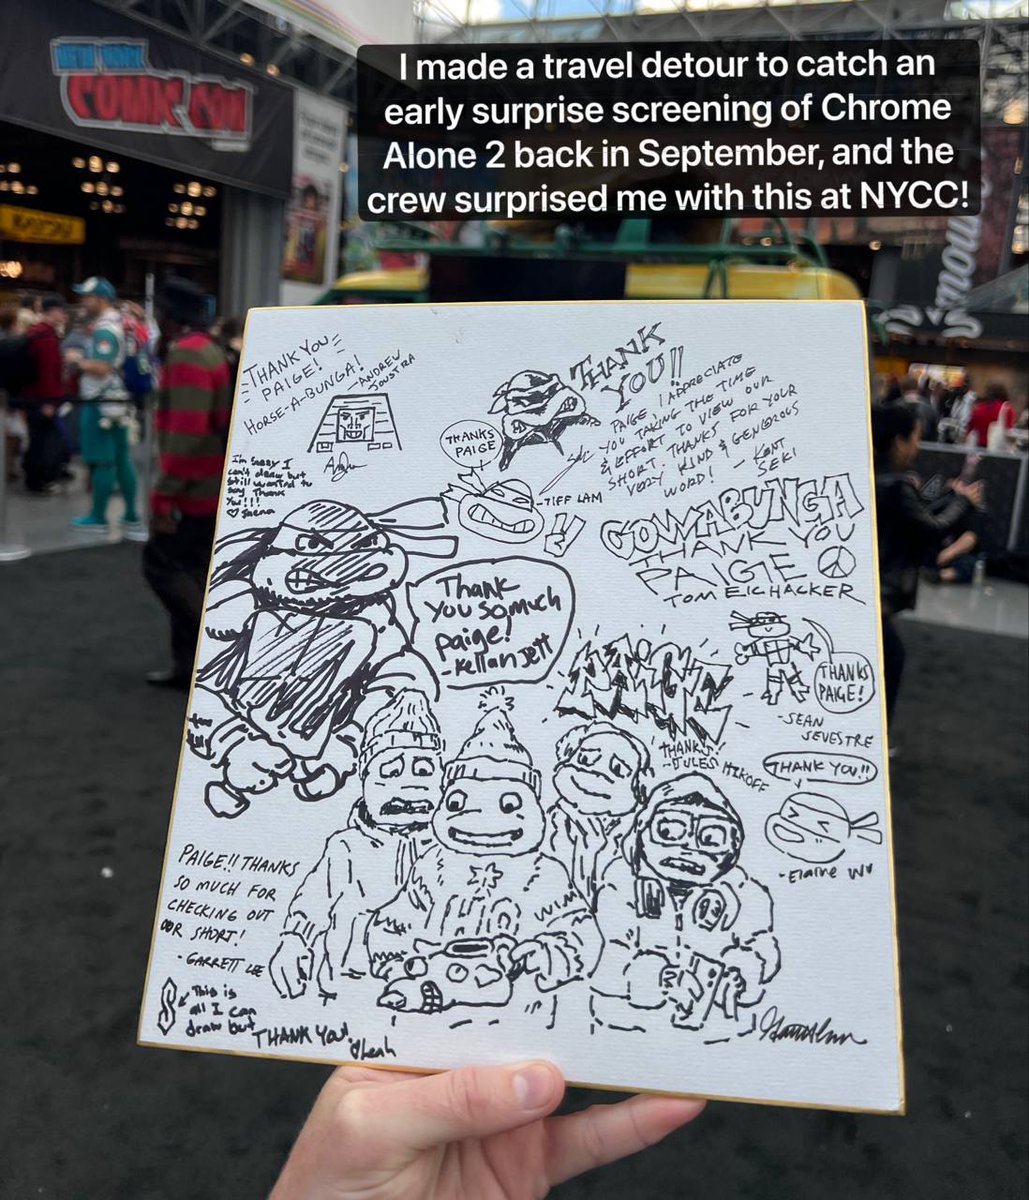 NEW YORK
COMIC CON
I made a travel detour to catch an
early surprise screening of Chrome
Alone 2 back in September, and the
crew surprised me with this at NYCC!
THANK YOU
PAIGE!
HORSE-A-BUNGA!
-ANDREW
JOUSTRA
I'm sorry I
can't draw but
still wanted to
say Thank
You!!!
THANK
YOU!!
PAIGE I APPRECIATE
YOU TAKING THE TIME
& EFFORT TO VIEW OUR
SHORT. THANKS FOR YOUR
VERY KIND & GENEROUS
WORD! - KENT
SEKI
THANKS
PAIGE
-TIFF LAM
COWABUNGA
THANK YOU
PAIGE
TOM EICHACKER
Thank
You so much
paige!
-Kellan Jett
THANKS
PAIGE!
-SEAN
SEVESTRE
THANKS
-JULES
THANK YOU!!
-Elaine Wu
PAIGE!! THANKS
SO MUCH FOR
CHECKING OUT
OUR SHORT!
-GARRETT LEE
This is
all I can
draw but
THANK YOU!
Leah